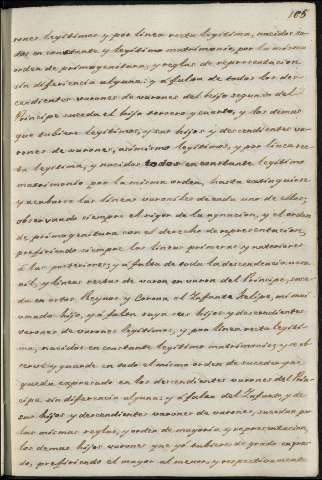 105
rones legitimos y por linea recta legitima, nacidos to-
dos en constante y legitimo matrimonio, por la misma
orden de primogenitura, y reglas de representacion
sin diferencia alguna: y á falta de todos los des-
cendientes varones de varones del hijo segundo del
Principe suceda el hijo tercero, y quarto, y los demas
que tubiere legitimos, y sus hijos y descendientes va-
rones de varones, asimismo legitimos, y por linea rec-
ta legitima, y nacidos todos en constante legitimo
matrimonio por la misma orden, hasta extinguirse
y acabarse las lineas varoniles de cada uno de ellos;
observando siempre el rigor de la agnacion, y el orden
de primogenitura con el derecho de representacion,
prefiriendo siempre las lineas primeras y anteriores
á las posteriores; y á falta de toda la descendencia varo-
nil, y lineas rectas de varon en varon del Principe, suce-
da en estos Reynos y Corona el Infante Felipe, mi mui
amado hijo, y á falta suya sus hijos y descendientes
varones de varones legitimos, y por linea recta legiti-
ma, nacidos en constante legitimo matrimonio; y se ob-
serve y guarde en todo el mismo orden de suceder que
queda expresado en los descendientes varones del Prin-
cipe sin diferencia alguna: y á falta del Infante, y de
sus hijos y descendientes varones de varones, sucedan por
las mismas reglas, y orden de mayoria y representacion,
los demas hijos varones que yo tubiere de grado en gra-
do, prefiriendo el mayor al menor, y respectivamente